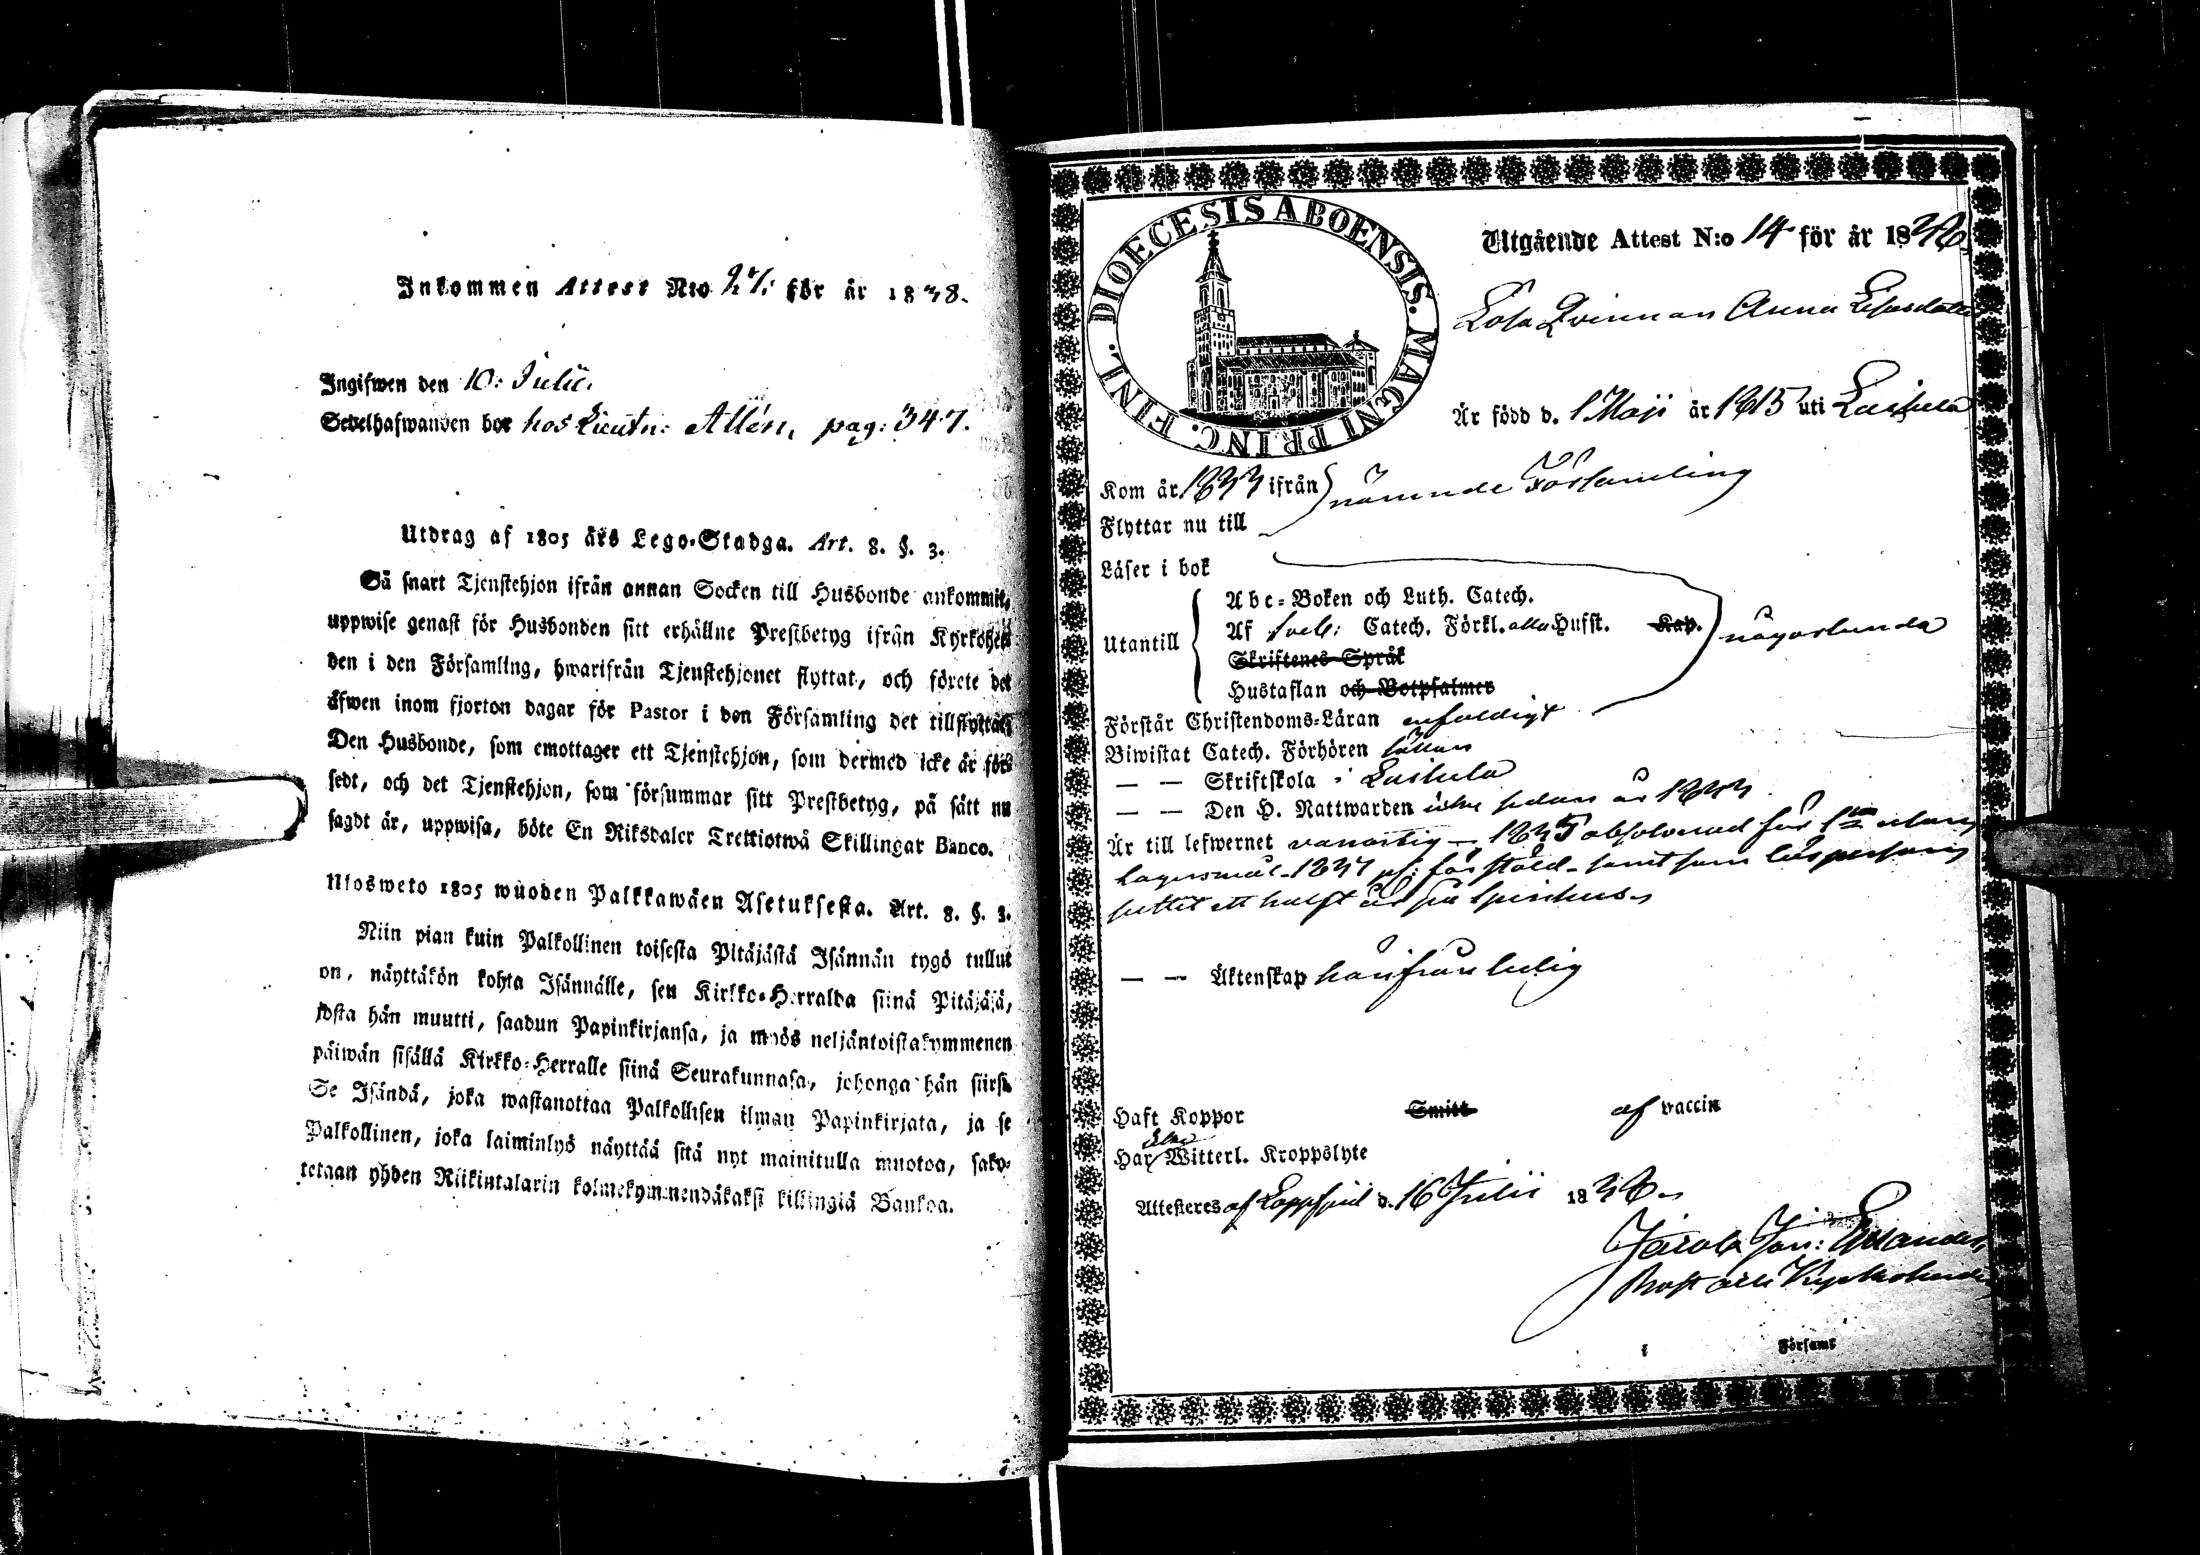 Inkommen Attest N:o för år 1838.
Ingifwen den 10: Julii.
Sedelhafwanden bor hos Lieutn: Allén, pag: 347.
Utdrag af 1805 års Lego-Stadga. Art. 8. §. 3.
Så snart Tjenstehjon ifrån annan Socken till Husbonde ankommit,
uppwise genast för Husbonden sitt erhållne Prestbetyg ifrån Kyrkoher-
den i den Församling, hwarifrån Tjenstehjonet flyttat, och förete det
äfwen inom fjorton dagar för Pastor i den Församling det tillflyttat.
Den Husbonde, som emottager ett Tjenstehjon, som dermed icke är för-
sedt, och det Tjenstehjon, som försummar sitt Prestbetyg, på sätt nu
sagdt är, uppwisa, böte En Riksdaler Trettiotwå Skillingar Banco.
Ulosweto 1805 wuoden Palkkawäen Asetuksesta. Art. 8. §. 3.
Niin pian kuin Palkollinen toisesta Pitäjästä Isännän tygö tullut
on, näyttäkön kohta Isännälle, sen Kirkko-Herralda siinä Pitäjäsä,
josta hän muutti, saadun Papinkirjansa, ja myös neljäntoistakymmenen
päiwän sisällä Kirkko-Herralle siinä Seurakunnasa, johonga hän siirsi.
Se Isändä, joka wastanottaa Palkollisen ilman Papinkirjata, ja se
Palkollinen, joka laiminlyö näyttää sitä nyt mainitulla muotoa, sako-
tetaan yhden Riikintalarin kolmekymmendäkaksi killingiä Bankoa.
DIOECESIS ABOENSIS. MAGNI PRINC. FINL.
Utgående Attest N:o 14 för år 1838
Lösa Qvinnan Anna
Är född d. 1 Maji år 1815 uti Laihela
Kom år 1833 ifrån nämnde Församling
Flyttar nu till
Läser i bok
Abc-Boken och Luth. Catech.
Utantill Af Sveb: Catech. Förkl. Husst. Kap. någorlunda
Skriftenes Språk
Hustaflan och Botpsalmer
Förstår Christendoms-Läran enfaldigt
Biwistat Catech. Förhören sällan
— — Skriftskola i Laihela
— — Den H. Nattwarden icke sedan år
Är till lefwernet vanartig – 1835 absolverad för 1:sta
lägersmål – 1837 för stöld – samt som
suttit ett halft år på Spinhus
— — Äktenskap härifrån ledig
Haft Koppor Smitt af vaccin
Har Witterl. Kroppslyte
Attesteras af Lappfjärd d. 16 Julii 1838
Jacob Joh:
Prost och Kyrkoherde
i Församl